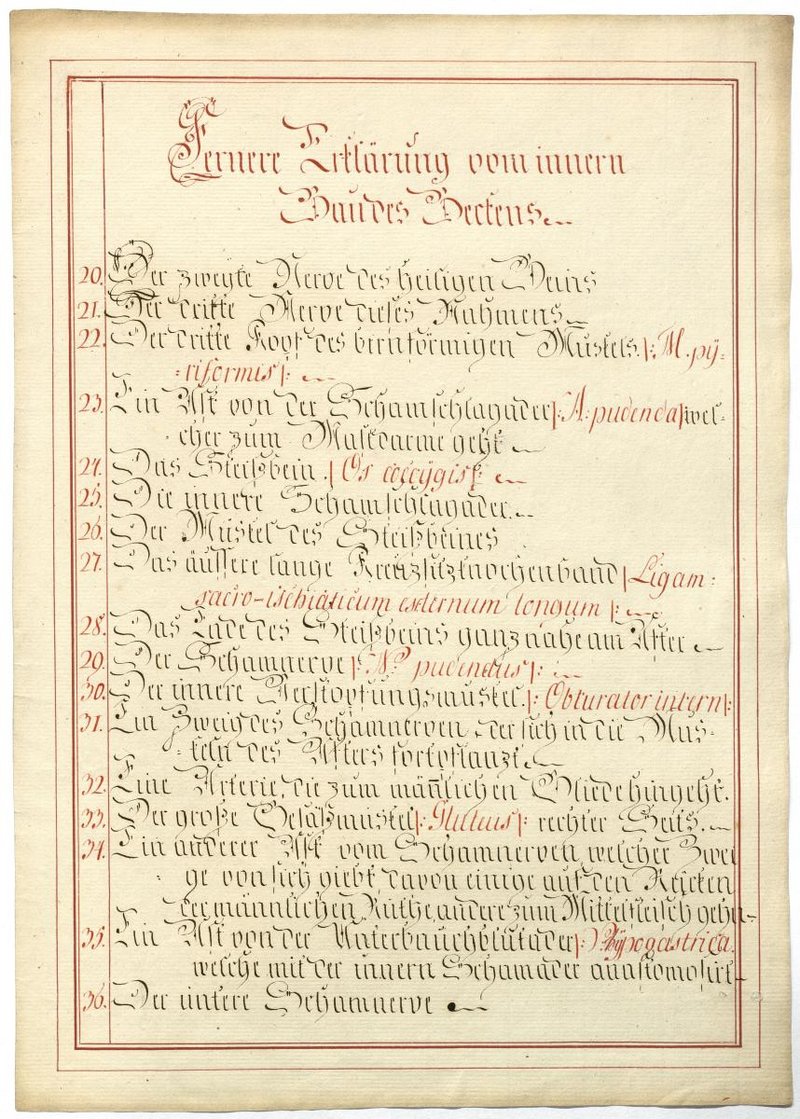 Fernere Erklärung vom innern
Bau des Beckens
20. Der zweyte Nerve des heiligen Beins
21. Der dritte Nerve dieses Nahmens.
22. Der dritte Kopf des birnförmigen Muskels. |: M. pÿ-
riformis :|
23. Ein Ast von der Schamschlagader |: A. pudenda :| wel-
cher zum Mastdarme geht
24. Das Steißbein. |: Os coccÿgis :|
25. Die innere Schamschlagader.
26. Der Muskel des Steißbeines
27. Das äussere lange Kreuzsitzknochenband |: Ligam:
sacro-ischiaticum externum longum :|
28. Das Ende des Steißbeins ganz nahe am After
29. Der Schamnerve |: N. pudendus :|
30. Der innere Verstopfungsmuskel. |: Obturator intern :|
31. Ein Zweig des Schamnerven, der sich in die Mus-
keln des Afters fortpflanzt.
32. Eine Arterie, die zum mäñlichen Gliede hingeht.
33. Der große Gesäßmuskel |: Gluteus :| rechter Seits.
34. Ein anderer Ast vom Schamnerven, welcher Zwei
ge von sich giebt, davon einige auf den Rücken
der männlichen Ruthe, andere zum Mittelfleisch gehn
35. Ein Ast von der Unterbauchblutader |: Hÿpogastrica.
welche mit der innern Schamader anastomosirt
36. Der untere Schamnerve